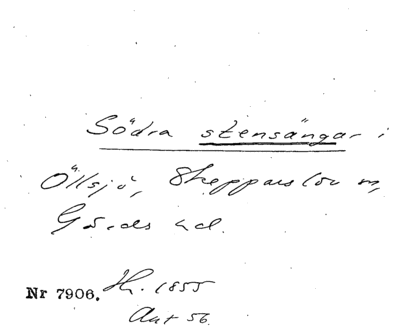 Södra stensängar i
Öllsjö, Skepparslöv sn,
Gärds hd.
Nr 7906. H. 1855
Aut 56.